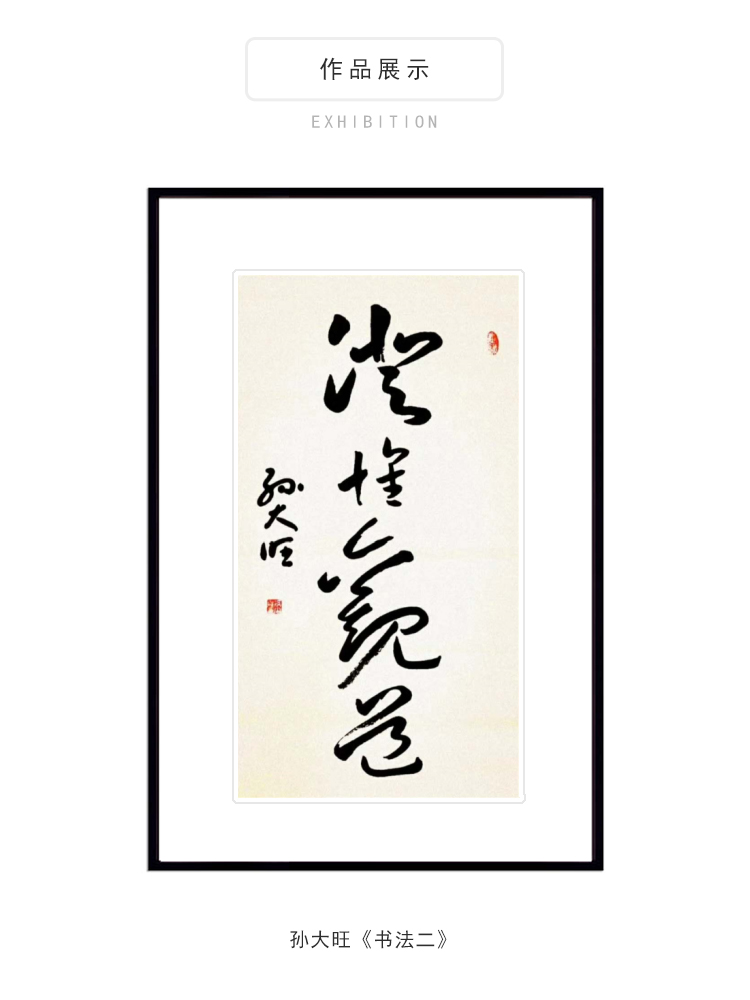 作品展示
EXHIBITION
澄懷觀道
孙大旺
孙大旺《书法二》